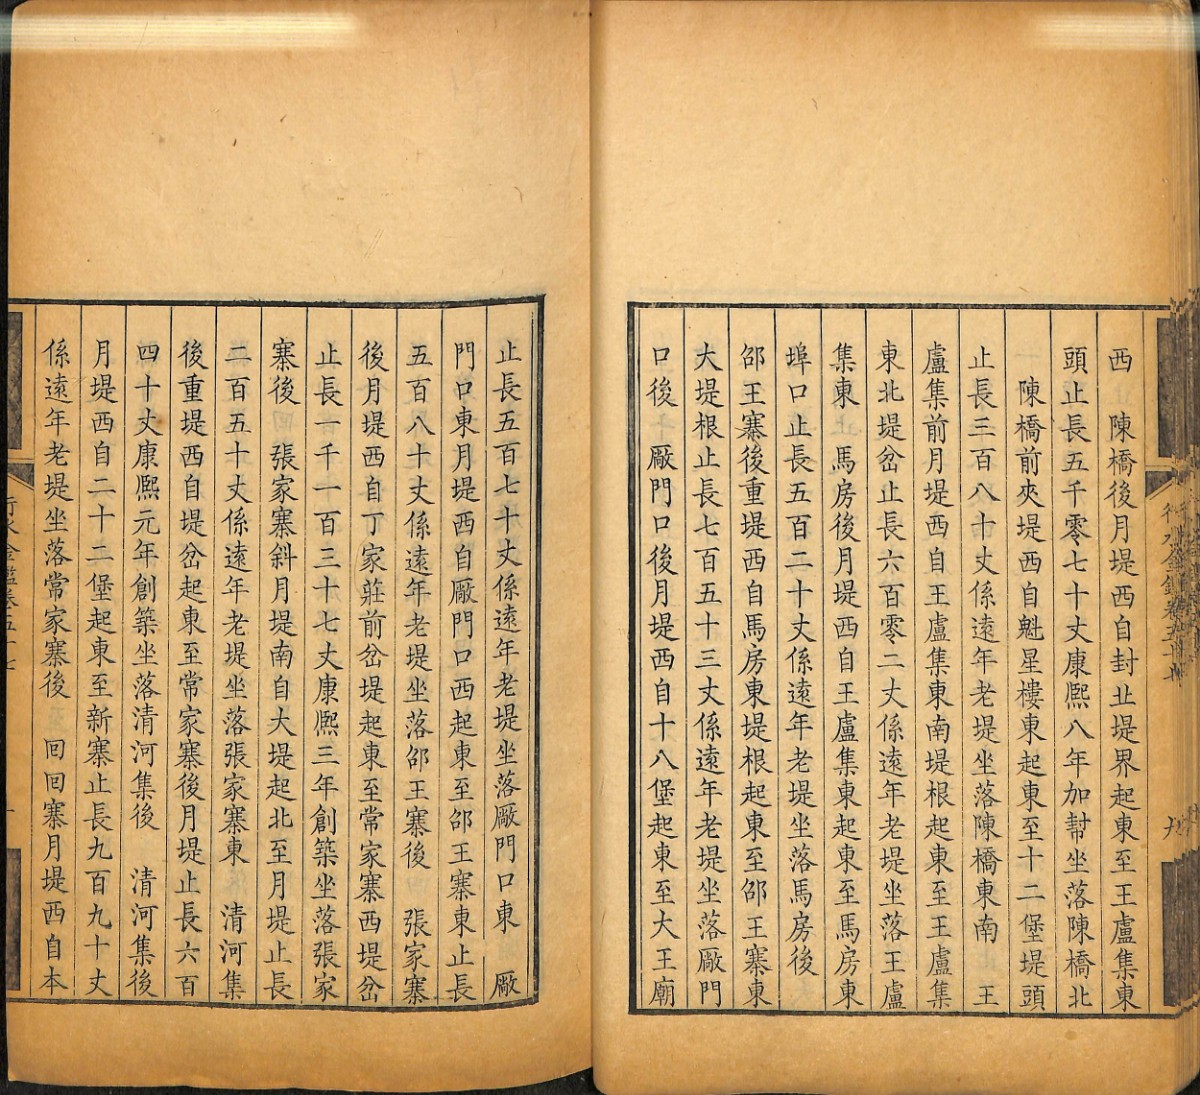 西 陳橋後月堤西自封丘堤界起東至王盧集東
頭止長五千零七十丈康熙八年加幇坐落陳橋北
陳橋前夾堤西自魁星樓東起東至十二堡堤頭
止長三百八十丈係遠年老堤坐落陳橋東南 王
盧集前月堤西自王盧集東南堤根起東至王盧集
東北堤岔止長六百零二丈係遠年老堤坐落王盧
集東 馬房後月堤西自王盧集東起東至馬房東
埠口止長五百二十丈係遠年老堤坐落馬房後
邵王寨後重堤西自馬房東堤根起東至邵王寨東
大堤根止長七百五十三丈係遠年老堤坐落厰門
口後 厰門口後月堤西自十八堡起東至大王廟
止長五百七十丈係遠年老堤坐落厰門口東 厰
門口東月堤西自厰門口西起東至邵王寨東止長
五百八十丈係遠年老堤坐落邵王寨後 張家寨
後月堤西自丁家莊前岔堤起東至常家寨西堤岔
止長一千一百三十七丈康熙三年創築坐落張家
寨後 張家寨斜月堤南自大堤起北至月堤止長
二百五十丈係遠年老堤坐落張家寨東 清河集
後重堤西自堤岔起東至常家寨後月堤止長六百
四十丈康熙元年創築坐落清河集後 清河集後
月堤西自二十二堡起東至新寨止長九百九十丈
係遠年老堤坐落常家寨後 回回寨月堤西自本
行水金鑑卷五十七